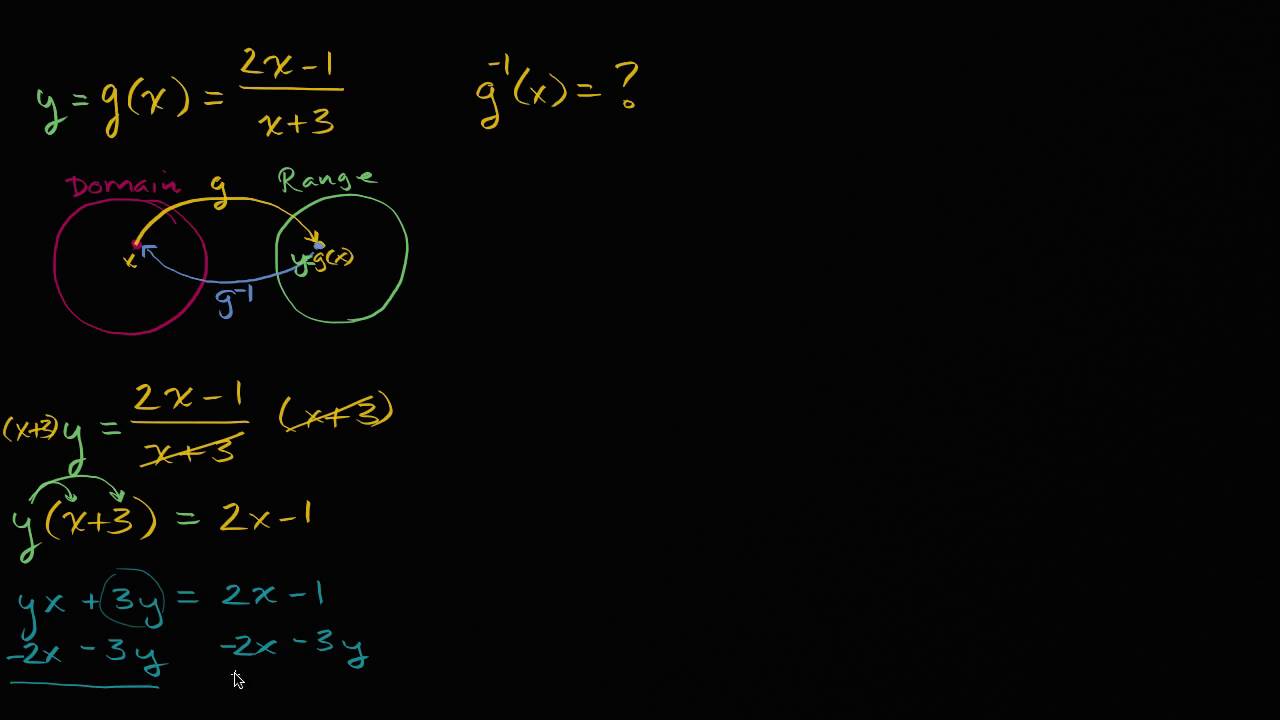 y = g(x) = 2x-1 / x+3
g⁻¹(x) = ?
Domain g Range
x y=g(x)
g⁻¹
(x+3) y = 2x-1 / x+3 (x+3)
y(x+3) = 2x-1
yx + 3y = 2x - 1
-2x - 3y -2x - 3y